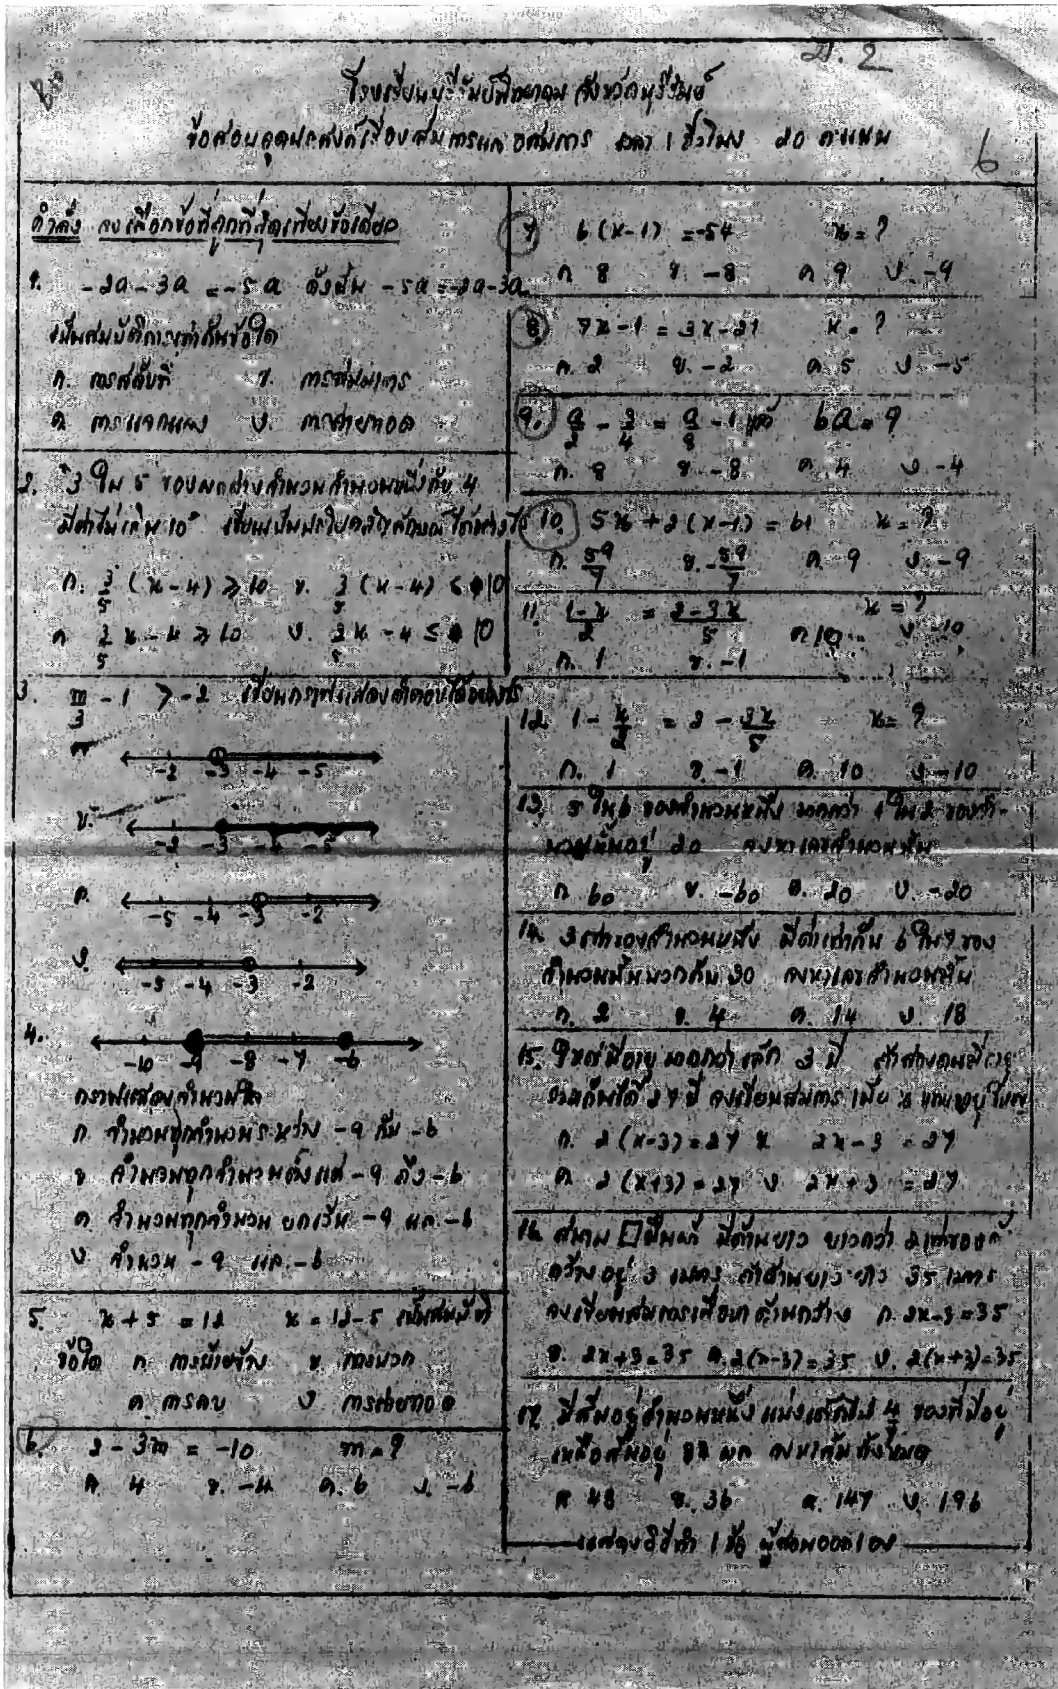 ม. 2
โรงเรียนบุรีรัมย์พิทยาคม จังหวัดบุรีรัมย์
ข้อสอบจุดประสงค์เรื่องสมการและอสมการ เวลา 1 ชั่วโมง 20 คะแนน
6
คำสั่ง จงเลือกข้อที่ถูกที่สุดเพียงข้อเดียว
1. -2a-3a = -5a ดังนั้น -5a = -2a-3a
เป็นสมบัติการเท่ากันข้อใด
ก. การสลับที่ ข. การสมมาตร
ค. การแจกแจง ง. การถ่ายทอด
2. "3 ใน 5 ของผลต่างจำนวนจำนวนหนึ่งกับ 4
มีค่าไม่เกิน 10" เขียนเป็นประโยคสัญลักษณ์ได้อย่างไร
ก. 3/5 (x-4) ≥ 10 ข. 3/5 (x-4) ≤ 10
ค. 3/5 x - 4 ≥ 10 ง. 3/5 x - 4 ≤ 10
3. m/3 - 1 > -2 เขียนกราฟแสดงคำตอบได้อย่างไร
ก. -2 -3 -4 -5
ข. -2 -3 -4 -5
ค. -5 -4 -3 -2
ง. -5 -4 -3 -2
4. -10 -9 -8 -7 -6
กราฟแสดงจำนวนใด
ก. จำนวนทุกจำนวนระหว่าง -9 กับ -6
ข. จำนวนทุกจำนวนตั้งแต่ -9 ถึง -6
ค. จำนวนทุกจำนวน ยกเว้น -9 และ -6
ง. จำนวน -9 และ -6
5. x + 5 = 12 x = 12-5 เป็นสมบัติ
ข้อใด ก. การย้ายข้าง ข. การบวก
ค. การลบ ง. การถ่ายทอด
6. 2 - 3m = -10 m = ?
ก. 4 ข. -4 ค. 6 ง. -6
7. 6(x-1) = -54 x = ?
ก. 8 ข. -8 ค. 9 ง. -9
8. 7x-1 = 3x-21 x = ?
ก. 2 ข. -2 ค. 5 ง. -5
9. a/2 - 3/4 = a/8 - 1 แล้ว 6a = ?
ก. 8 ข. -8 ค. 4 ง. -4
10. 5x + 2(x-1) = 61 x = ?
ก. 59/7 ข. -59/7 ค. 9 ง. -9
11. 1-x/2 = 2-3x/5 x = ?
ก. 1 ข. -1 ค. 10 ง. -10
12. 1 - x/2 = 2 - 3x/5 x = ?
ก. 1 ข. -1 ค. 10 ง. -10
13. 5 ใน 6 ของจำนวนหนึ่ง มากกว่า 1 ใน 2 ของจำ-
นวนนั้นอยู่ 20 จงหาเลขจำนวนนั้น
ก. 60 ข. -60 ค. 20 ง. -20
14. 3 เท่าของจำนวนหนึ่ง มีค่าเท่ากับ 6 ใน 7 ของ
จำนวนนั้นบวกกับ 30 จงหาเลขจำนวนนั้น
ก. 2 ข. 4 ค. 14 ง. 18
15. ใหญ่มีอายุมากกว่าเล็ก 3 ปี ถ้าสองคนมีอายุ
รวมกันได้ 27 ปี จงเขียนสมการ เมื่อ x แทนอายุใหญ่
ก. 2(x-3) = 27 ข. 2x-3 = 27
ค. 2(x+3) = 27 ง. 2x+3 = 27
16. สนาม □ ผืนผ้า มีด้านยาว ยาวกว่า 2 เท่าของด้าน
กว้างอยู่ 3 เมตร ถ้าด้านยาว ยาว 35 เมตร
จงเขียนสมการเพื่อหาด้านกว้าง ก. 2x-3=35
ข. 2x+3=35 ค. 2(x-3)=35 ง. 2(x+3)=35
17. มีส้มอยู่จำนวนหนึ่ง แบ่งให้เด็กไป
ก. 48 ข. 36 ค. 147 ง. 196
แสดงวิธีทำ 1 ข้อ ผู้สอนออกเอง